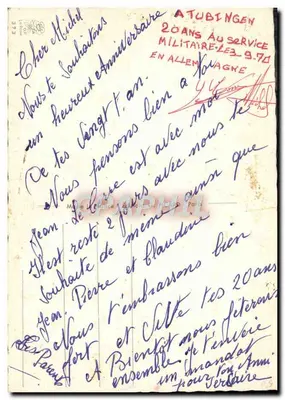 A TUBINGEN
20 ANS AU SERVICE
MILITAIRE-LE 3.9.70
EN ALLEMAGNE
Cher Michel
Nous te souhaitons
un heureux Anniversaire
De tes vingt ans.
Nous pensons bien a toi
Jean est avec nous
Il est resté 2 jours avec nous te
souhaite de même ainsi que
Jean Pierre et Claudine
Nous t'embrassons bien
fort et Vive tes 20 ans
A Bientôt nous fêterons
ensemble je t'envoie
un mandat
pour ton Anni
versaire
Tes Parents